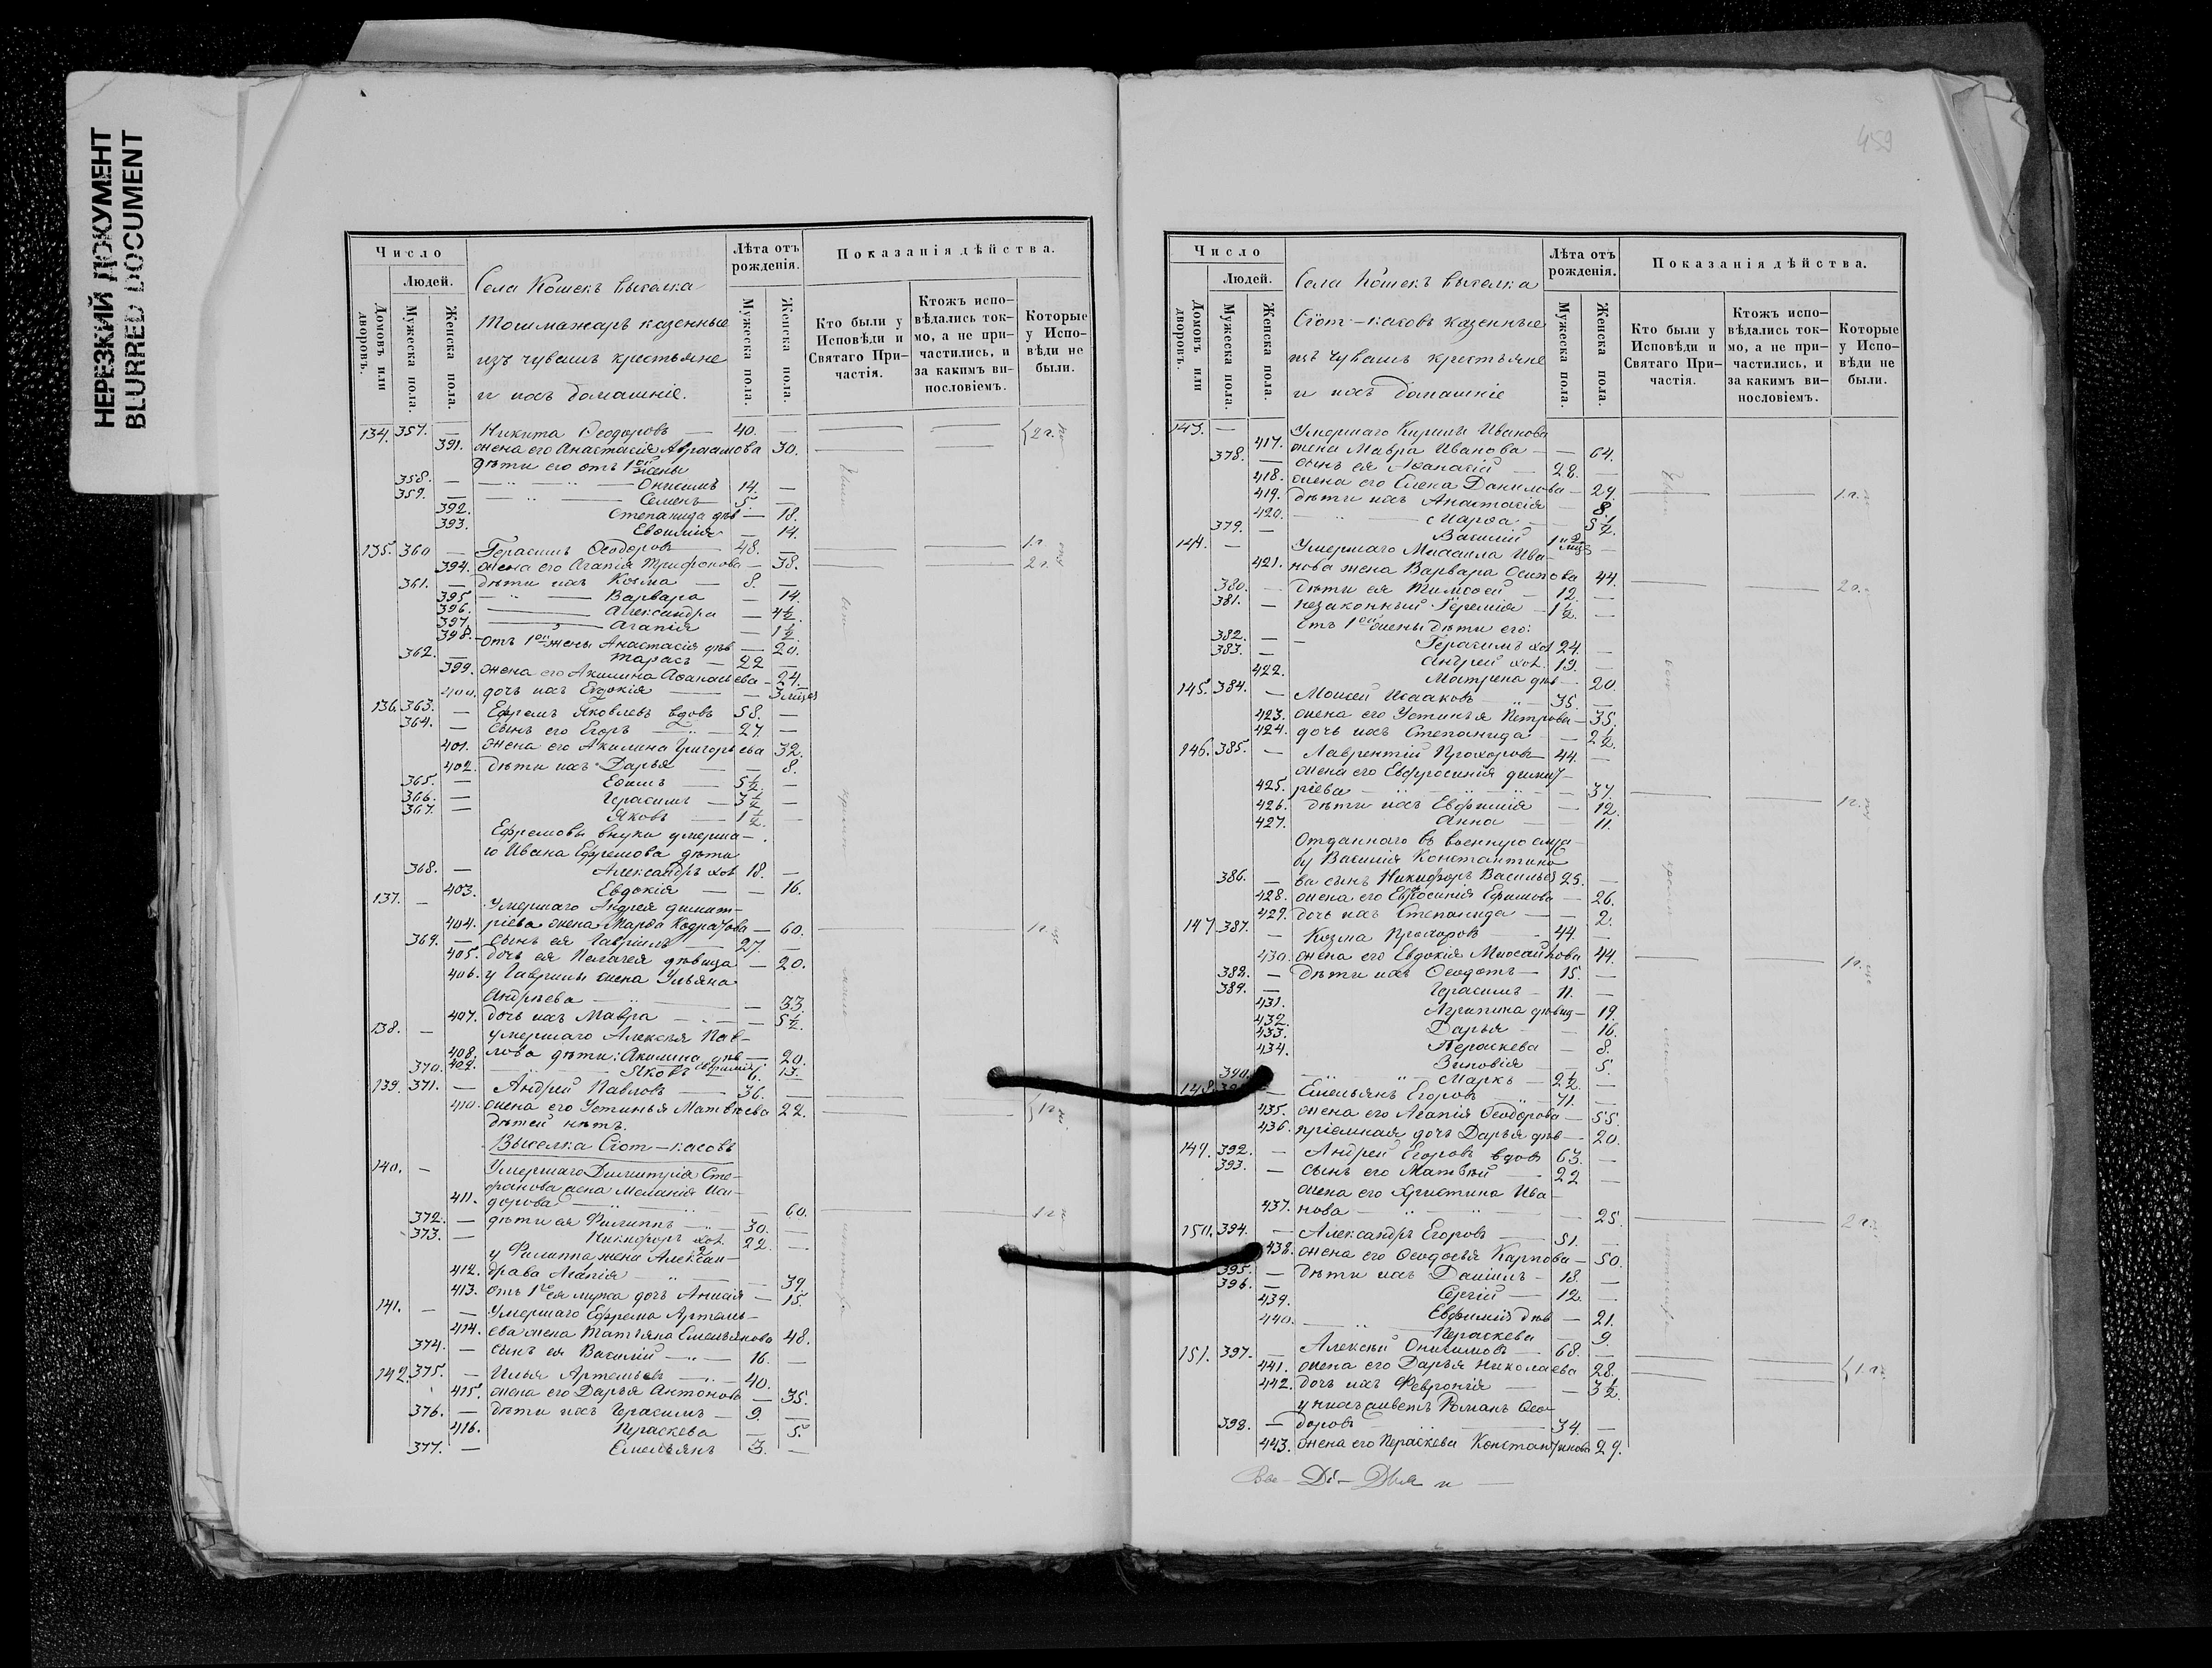 НЕРЕЗКИЙ ДОКУМЕНТ
BLURRED DOCUMENT
459
Число
Людей.
Домовъ или дворовъ.
Мужеска пола.
Женска пола.
Села Кошекъ выселка
Тошмажаръ казенные
изъ чувашъ крестьяне
и ихъ домашніе.
Лѣта отъ рожденія.
Мужеска пола.
Женска пола.
Показанія дѣйства.
Кто были у Исповѣди и Святаго Причастія.
Ктожъ исповѣдались токмо, а не причастились, и за какимъ винословіемъ.
Которые у Исповѣди не были.
134. 357. — Никита Ѳеодоровъ — 40. — 2 г.
391. жена его Анастасія Авраамова 30.
дѣти его отъ 1ой жены
358. — Онисимъ 14. —
359. — Семенъ 5. —
392. Степанида дѣв — 18.
393. Евѳимія — 14.
135. 360 — Герасимъ Ѳеодоровъ 48. — 1 г.
394. жена его Агапія Трифонова — 38. 2 г.
361. — дѣти ихъ Козма — 8. —
395 Варвара — 14.
396. Александра — 4½
397. Агапія — 1½.
398. отъ 1ой жены Анастасія дѣв — 20.
362. — Тарасъ — 22 —
399. жена его Акилина Аѳанасьева — 24.
400. дочь ихъ Евдокія — 3 мѣс
136. 363. — Ефремъ Яковлевъ вдовъ 58. —
364. — сынъ его Егоръ 27. —
401. жена его Акилина Григорьева 32.
402. дѣти ихъ Дарья — 8.
365. — Ефимъ 5½ —
366. — Герасимъ — 3½ —
367. — Яковъ — 1½. —
Ефремовы внуки умерша-
го Ивана Ефремова дѣти
368. — Александръ хол 18. —
403. Евдокія — 16.
137. — Умершаго Андрея Димит-
404. ріева жена Марѳа Кодратова — 60. 1 г.
369. — сынъ ея Гавріилъ — 27. —
405. дочь ея Пелагея дѣвица — 20.
406. у Гавріилы жена Ульяна
Андреева — 33.
407. дочь ихъ Мавра — 5½.
138. — умершаго Алексѣя Пав-
408. лова дѣти: Акилина дѣв — 20.
409. Евѳимія 13.
370. Яковъ 6.
139. 371. — Андрей Павловъ — 36. —
410. жена его Устинья Матвѣева 22. 1 г.
дѣтей нѣтъ.
Выселка Сіот-касовъ
140. — Умершаго Димитрія Сте-
фанова жена Меланія Иси-
411. дорова — 60. 1 г.
372. — дѣти ея Филиппъ — 30. —
373. — Никифоръ хол. 22. —
у Филиппа жена Алексан-
412. дрова Агапія — 39.
413. отъ 1го ея мужа дочь Анисія — 15.
141. — — Умершаго Ефрема Артемь-
414. ева жена Татьяна Емельянова 48.
374. — сынъ ея Василій — 16. —
142. 375. — Илья Артемьевъ — 40.
415. жена его Дарья Антонова — 35.
376. — дѣти ихъ Герасимъ — 9. —
416. Параскева — 5.
377. — Емельянъ 3. —
Число
Людей.
Домовъ или дворовъ.
Мужеска пола.
Женска пола.
Села Кошекъ выселка
Сіот-касовъ казенные
изъ чувашъ крестьяне
и ихъ домашніе
Лѣта отъ рожденія.
Мужеска пола.
Женска пола.
Показанія дѣйства.
Кто были у Исповѣди и Святаго Причастія.
Ктожъ исповѣдались токмо, а не причастились, и за какимъ винословіемъ.
Которые у Исповѣди не были.
143. — Умершаго Кирилы Иванова
417. жена Мавра Иванова — 64.
378. — сынъ ея Аѳанасій — 28. —
418. жена его Елена Данилова — 29. 1 г.
419. дѣти ихъ Анастасія — 8.
420. Марѳа — 5½.
379. — Василій —
144. — Умершаго Михаила Ива-
421. нова жена Варвара Осипова 44. 2 г.
380. — дѣти ея Тимоѳей — 12. —
381. — незаконный Іеремія — 1½. —
отъ 1ой жены дѣти его:
382. — Герасимъ хол 24. —
383. — Андрей хол. 19. —
422. Матрена дѣв — 20.
145. 384. — Моисей Исааковъ — 35. —
423. жена его Устинья Петрова — 35.
424. дочь ихъ Степанида — 2½.
146. 385. — Лаврентій Прохоровъ 44. —
жена его Евфросинія Димит-
425. ріева — 37. 1 г.
426. дѣти ихъ Евфимія — 12.
427. Анна — 11.
Отданнаго въ военную служ-
бу Василія Константино
386. — ва сынъ Никифоръ Васильев 25. —
428. жена его Евфросинія Ефимова — 26.
429. дочь ихъ Степанида — 2.
147 387. — Козма Прохоровъ — 44. —
430. жена его Евдокія Михайлова 44. 1 г.
388. — дѣти ихъ Ѳеодотъ — 15. —
389. — Герасимъ — 11. —
431. Агрипина дѣвиц — 19.
432. Дарья — 16.
433. Параскева — 8.
434. Зиновія — 5.
390. Маркъ — 2½. —
148. — Емельянъ Егоровъ — 71. —
435. жена его Агапія Ѳеодорова — 55.
436. пріемная дочь Дарья дѣв — 20.
149. 392. — Андрей Егоровъ вдовъ 63. —
393. — сынъ его Матвѣй — 22 —
жена его Христина Ива-
437. нова — 25. 2 г.
150. 394. — Александръ Егоровъ — 51. —
438. жена его Ѳеодосья Карпова — 50.
395. — дѣти ихъ Даніилъ — 18. —
396. — Сергій — 12. —
439. Евфимія дѣв — 21.
440. Параскева — 9.
151. 397. — Алексѣй Онисимовъ — 68. —
441. жена его Дарья Николаева 28. 1 г.
442. дочь ихъ Февронія — 3½.
у нихъ живетъ Романъ Ѳео-
398. — доровъ — 34. —
443. жена его Параскева Константинова 29.